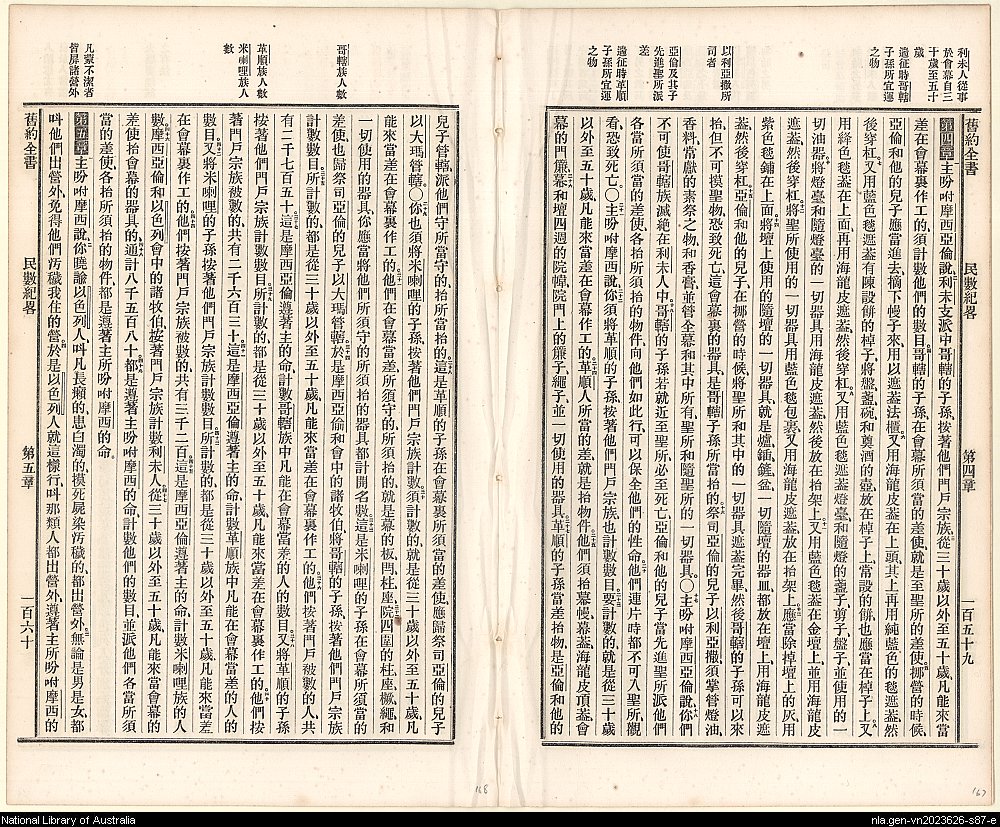 利未人從事
於會幕自三
十歲至五十
歲
遠征時哥轄
子孫所宜運
之物
以利亞撒所
司者
亞倫及其子
先進聖所派
差
遠征時革順
子孫所宜運
之物
舊約全書
民數紀畧
第四章
一百五十九
第四章 主吩咐摩西亞倫說、利未支派中哥轄的子孫、按著他們門戶宗族、從三十歲以外至五十歲、凡能來當
差在會幕裏作工的、須計數他們的數目、哥轄的子孫、在會幕所須當的差使、就是至聖所的差使、挪營的時候、
亞倫和他的兒子應當進去、摘下幔子來、用以遮盖法櫃、又用海龍皮遮盖在上頭、其上再用純藍色的毯遮盖、然
後穿杠、又用藍色毯遮盖有陳設餅的棹子、將盤、盞、碗、和奠酒的壺、放在棹子上、常設的餅、也應當在棹子上、又
用絳色毯盖在上面、再用海龍皮遮盖、然後穿杠、又用藍色毯遮盖燈臺、和隨燈的盞子、剪子、盤子、並使用的一
切油器、將燈臺和隨燈臺的一切器具、用海龍皮遮盖、然後放在抬架上、又用藍色毯盖在金壇上、並用海龍皮
遮盖、然後穿杠、將聖所使用的一切器具、用藍色毯包裹、又用海龍皮遮盖、放在抬架上、應當除掉壇上的灰、用
紫色毯鋪在上面、將壇上使用的、隨壇的一切器具、就是爐、鍤、盆、一切隨壇的器皿、都放在壇上、用海龍皮遮
盖、然後穿杠、亞倫和他的兒子、在挪營的時候、將聖所和其中的一切器具遮盖完畢、然後哥轄的子孫可以來
抬、但不可摸聖物、恐致死亡、這會幕裏的器具、是哥轄子孫所當抬的、祭司亞倫的兒子以利亞撒、須掌管燈油、
香料、常獻的素祭之物、和香膏、並管全幕和其中所有、聖所和隨聖所的一切器具、〇主吩咐摩西亞倫說、你們
不可使哥轄族滅絕在利未人中、哥轄的子孫若就近至聖所、必至死亡、亞倫和他的兒子當先進聖所、派他們
各當所須當的差使、各抬所須抬的物件、向他們如此行、可以保全他們的性命、他們連片時都不可入聖所觀
看、恐致死亡、〇主吩咐摩西說、你須將革順的子孫、按著他們門戶宗族、也計數數目、要計數的、就是從三十歲
以外至五十歲、凡能來當差在會幕作工的、革順人所當的差、就是抬物件、他們須抬幕幔、幕盖、海龍皮頂盖、會
幕的門簾、幕和壇四週的院幃、院門上的簾子、繩子、並一切使用的器具、革順的子孫當差抬物、是亞倫和他的
哥轄族人數
革順族人數
米喇哩族人
數
凡蒙不潔者
皆屏諸營外
兒子管轄、派他們守所當守的、抬所當抬的、這是革順的子孫在會幕裏所須當的差使、應歸祭司亞倫的兒子
以大瑪管轄、〇你也須將米喇哩的子孫、按著他們門戶宗族計數、須計數的、就是從三十歲以外至五十歲、凡
能來當差在會幕裏作工的、他們在會幕當差、所須守的、所須抬的、就是幕的板、閂、柱、座、院四圍的柱、座、橛、繩、和
一切使用的器具、你應當將他們所須守的、所須抬的器具、都計開名數、這是米喇哩的子孫在會幕所須當的
差使、也歸祭司亞倫的兒子以大瑪管轄、於是摩西亞倫和會中的諸牧伯、將哥轄的子孫、按著他們門戶宗族
計數數目、所計數的、都是從三十歲以外至五十歲、凡能來當差在會幕裏作工的、他們按著門戶被數的人、共
有二千七百五十、這是摩西亞倫遵著主的命、計數哥轄族中、凡能在會幕當差的人的數目、又將革順的子孫、
按著他們門戶宗族計數數目、所計數的、都是從三十歲以外至五十歲、凡能來當差在會幕裏作工的、他們按
著門戶宗族被數的、共有二千六百三十、這是摩西亞倫遵著主的命、計數革順族中、凡能在會幕當差的人的
數目、又將米喇哩的子孫、按著他們門戶宗族計數數目、所計數的、都是從三十歲以外至五十歲、凡能來當差
在會幕裏作工的、他們按著門戶宗族被數的、共有三千二百、這是摩西亞倫遵著主的命、計數米喇哩族的人
數、摩西亞倫和以色列會中的諸牧伯、按著門戶宗族計數利未人、從三十歲以外至五十歲、凡能來當會幕的
差使、抬會幕的器具的、通計八千五百八十、都是遵著主吩咐摩西的命、計數他們的數目、並派他們各當所須
當的差使、各抬所須抬的物件、都是遵著主所吩咐摩西的命。
第五章 主吩咐摩西說、你曉諭以色列人、叫凡長癩的、患白濁的、摸死屍染汚穢的、都出營外、無論是男是女、都
叫他們出營外、免得他們汚穢我住的營、於是以色列人就這樣行、叫那類人都出營外、遵著主所吩咐摩西的
舊約全書
民數紀畧
第五章
一百六十
168
167
National Library of Australia
nla.gen-vn2023626-s87-e